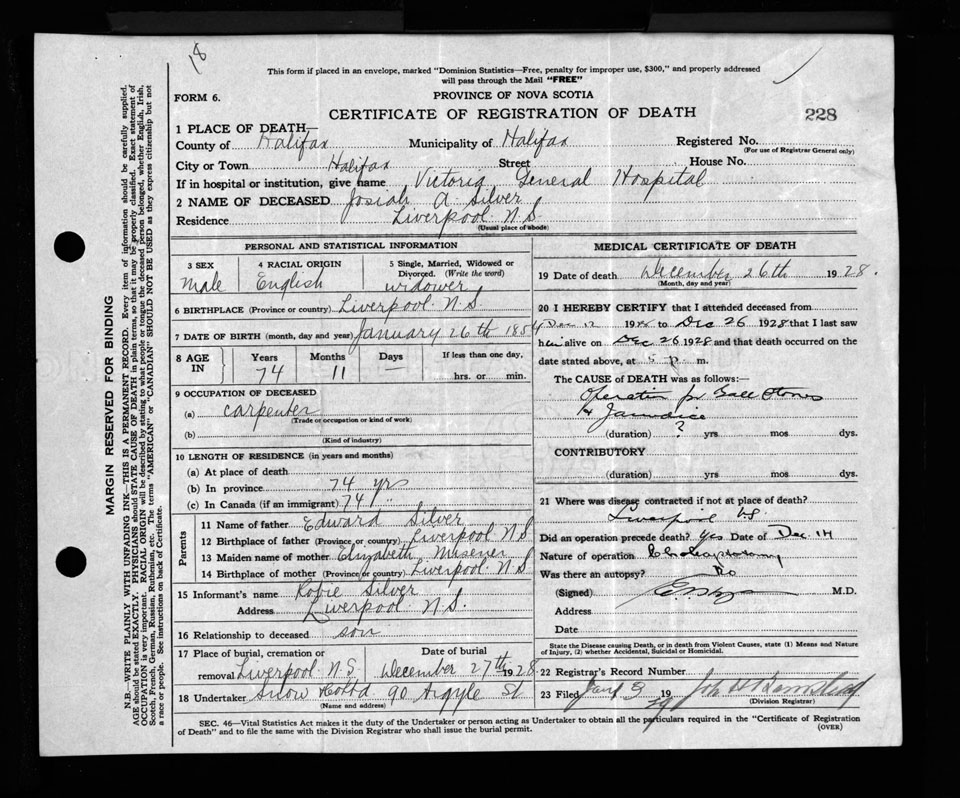 18
This form if placed in an envelope, marked "Dominion Statistics—Free, penalty for improper use, $300," and properly addressed
will pass through the Mail "FREE"
FORM 6.
PROVINCE OF NOVA SCOTIA
CERTIFICATE OF REGISTRATION OF DEATH
228
1 PLACE OF DEATH—
County of Halifax Municipality of Halifax Registered No.
(For use of Registrar General only)
City or Town Halifax Street House No.
If in hospital or institution, give name Victoria General Hospital
2 NAME OF DECEASED Josiah A Silver
Residence Liverpool N.S.
(Usual place of abode)
PERSONAL AND STATISTICAL INFORMATION
3 SEX 4 RACIAL ORIGIN 5 Single, Married, Widowed or
Divorced. (Write the word)
Male English widower
6 BIRTHPLACE (Province or country) Liverpool N.S.
7 DATE OF BIRTH (month, day and year) January 26th 1854
8 AGE IN Years Months Days If less than one day,
74 11 — hrs. or min.
9 OCCUPATION OF DECEASED
(a) carpenter
(Trade or occupation or kind of work)
(b)
(Kind of industry)
10 LENGTH OF RESIDENCE (in years and months)
(a) At place of death
(b) In province 74 yrs
(c) In Canada (if an immigrant) 74 "
Parents
11 Name of father Edward Silver
12 Birthplace of father (Province or country) Liverpool N.S
13 Maiden name of mother Elizabeth Misener
14 Birthplace of mother (Province or country) Liverpool N.S
15 Informant's name Robie Silver
Address Liverpool N.S.
16 Relationship to deceased son
17 Place of burial, cremation or removal Date of burial
Liverpool N.S. December 27th 1928
18 Undertaker Snow & Co Ltd 90 Argyle St
(Name and address)
MEDICAL CERTIFICATE OF DEATH
19 Date of death December 26th 1928.
(Month, day and year)
20 I HEREBY CERTIFY that I attended deceased from
Dec 12 1928 to Dec 26 1928 that I last saw
him alive on Dec 26 1928 and that death occurred on the
date stated above, at 5 p. m.
The CAUSE OF DEATH was as follows:—
Operation for Gall Stones
& Jaundice
(duration) ? yrs mos dys.
CONTRIBUTORY
(duration) yrs mos dys.
21 Where was disease contracted if not at place of death?
Liverpool NS.
Did an operation precede death? yes Date of Dec 14
Nature of operation
Was there an autopsy? No
(Signed) M.D.
Address
Date
State the Disease causing Death, or in death from Violent Causes, state (1) Means and Nature
of Injury, (2) whether Accidental, Suicidal or Homicidal.
22 Registrar's Record Number
23 Filed Jany 3 1929
(Division Registrar)
SEC. 46—Vital Statistics Act makes it the duty of the Undertaker or person acting as Undertaker to obtain all the particulars required in the "Certificate of Registration
of Death" and to file the same with the Division Registrar who shall issue the burial permit.
(OVER)
MARGIN RESERVED FOR BINDING
N.B.—WRITE PLAINLY WITH UNFADING INK—THIS IS A PERMANENT RECORD. Every item of information should be carefully supplied.
AGE should be stated EXACTLY. PHYSICIANS should STATE CAUSE OF DEATH in plain terms, so that it may be properly classified. Exact statement of
OCCUPATION is very important. RACIAL ORIGIN will be described by stating to what people or tongue the deceased person belonged, whether English, Irish,
Scotch, French, German, Russian, Ruthenian, etc. The terms "AMERICAN" or "CANADIAN" SHOULD NOT BE USED as they express citizenship but not
a race or people. See instructions on back of Certificate.